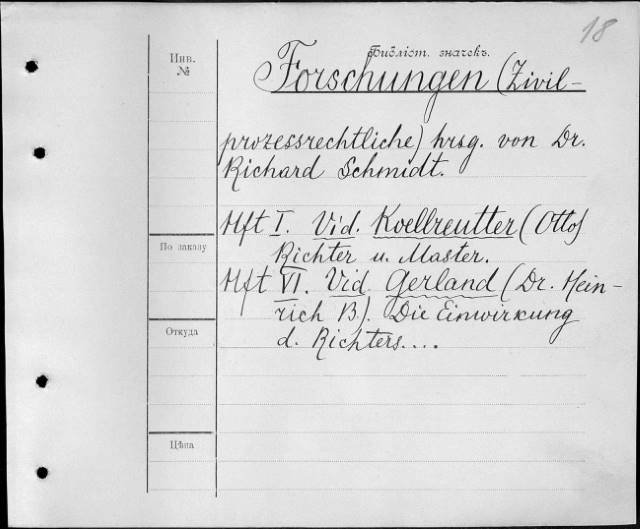 18
Библіот. значекъ.
Инв.
№
Forschungen (Zivil-
prozessrechtliche) hrsg. von Dr.
Richard Schmidt.
Hft I. Vid. Koellreutter (Otto)
Richter u. Master.
Hft VI. Vid. Gerland (Dr. Hein-
rich B). Die Einwirkung
d. Richters....
По заказу
Откуда
Цѣна